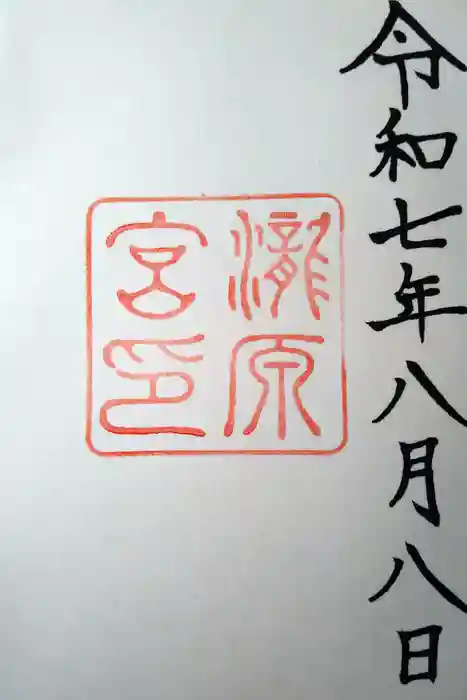 令和七年八月八日
瀧原
宮印